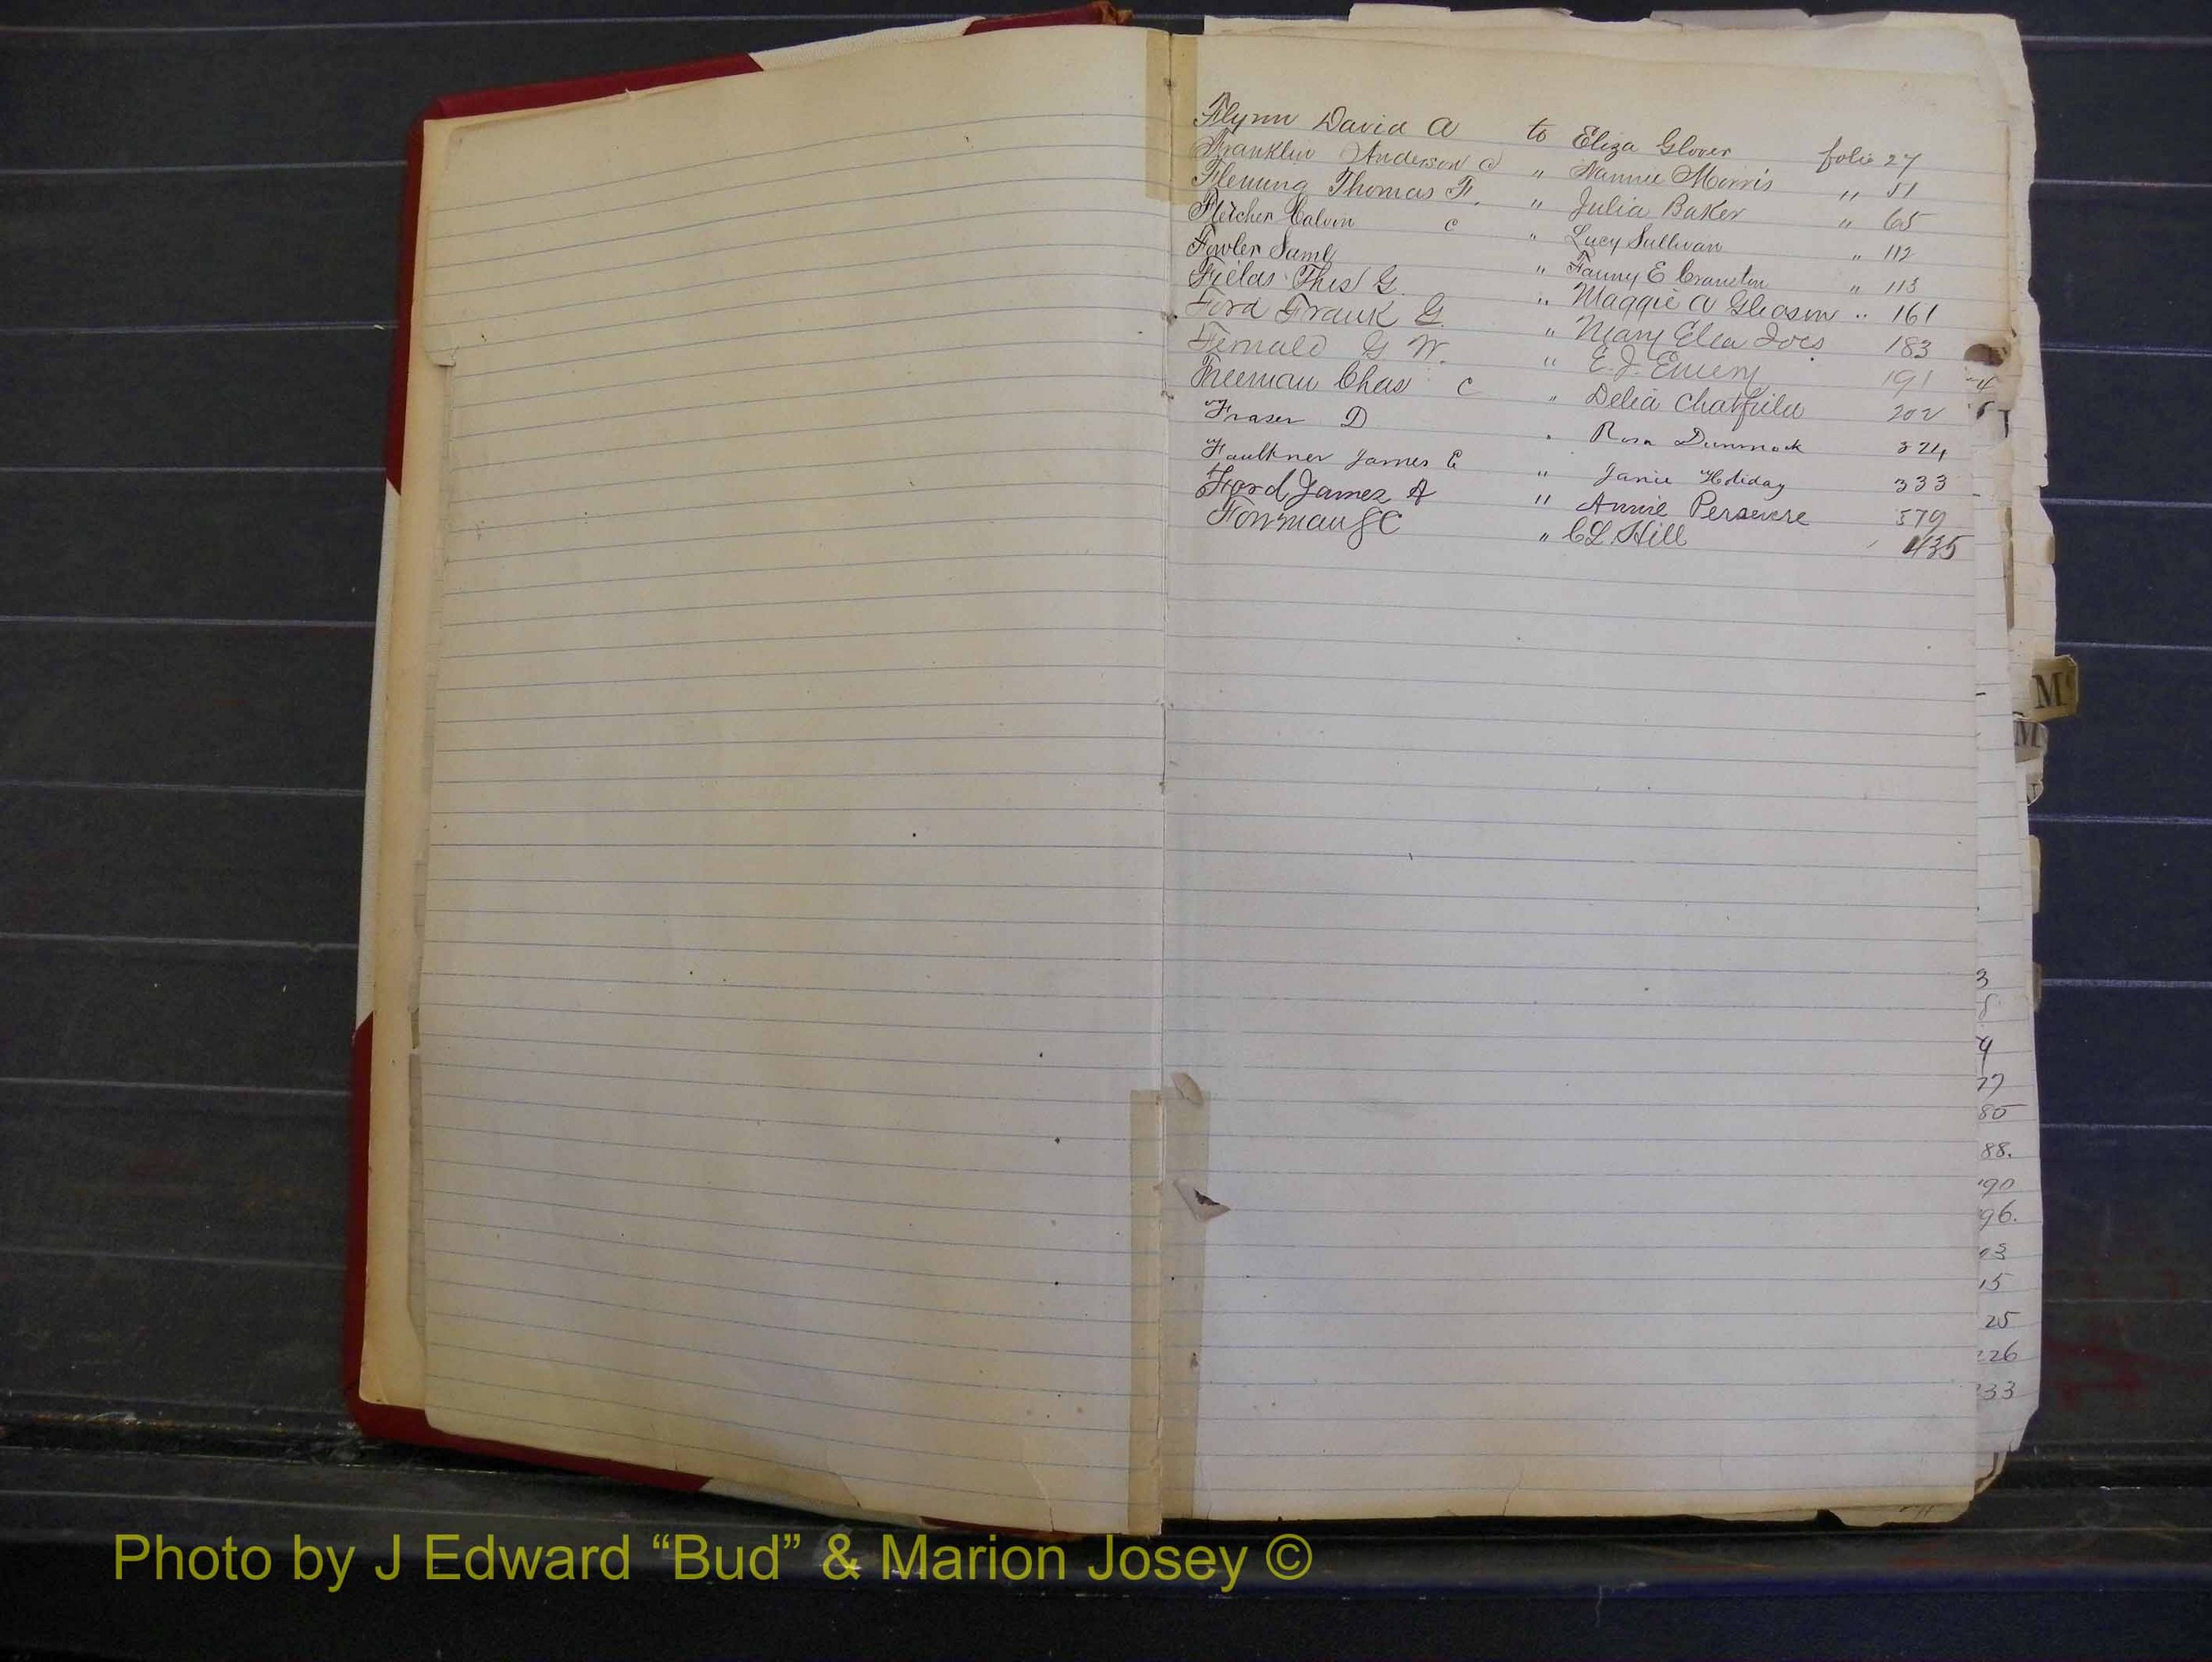 Flynn David A to Eliza Glover folio 27
Franklin Anderson C " Nannie Morris " 51
Fleming Thomas F. " Julia Baker " 65
Fletcher Calvin c " Lucy Sullivan " 112
Fowler Saml " Fanny E Cranston " 113
Fields Thos G. " Maggie A Gleason " 161
Ford Frank G. " Mary Ella 183
Fernald G. W. " E. J. Emery 191
Freeman Chas c " Delia Chatfield 202
Fraser D " Rosa Dummock 324
Faulkner James E " Janie Holiday 333
Ford James A " Annie Persevere 379
Forman C " C L. Hill 435
M
M
3
8
4
77
85
88.
90
96.
03
15
25
226
233
Photo by J Edward “Bud” & Marion Josey ©